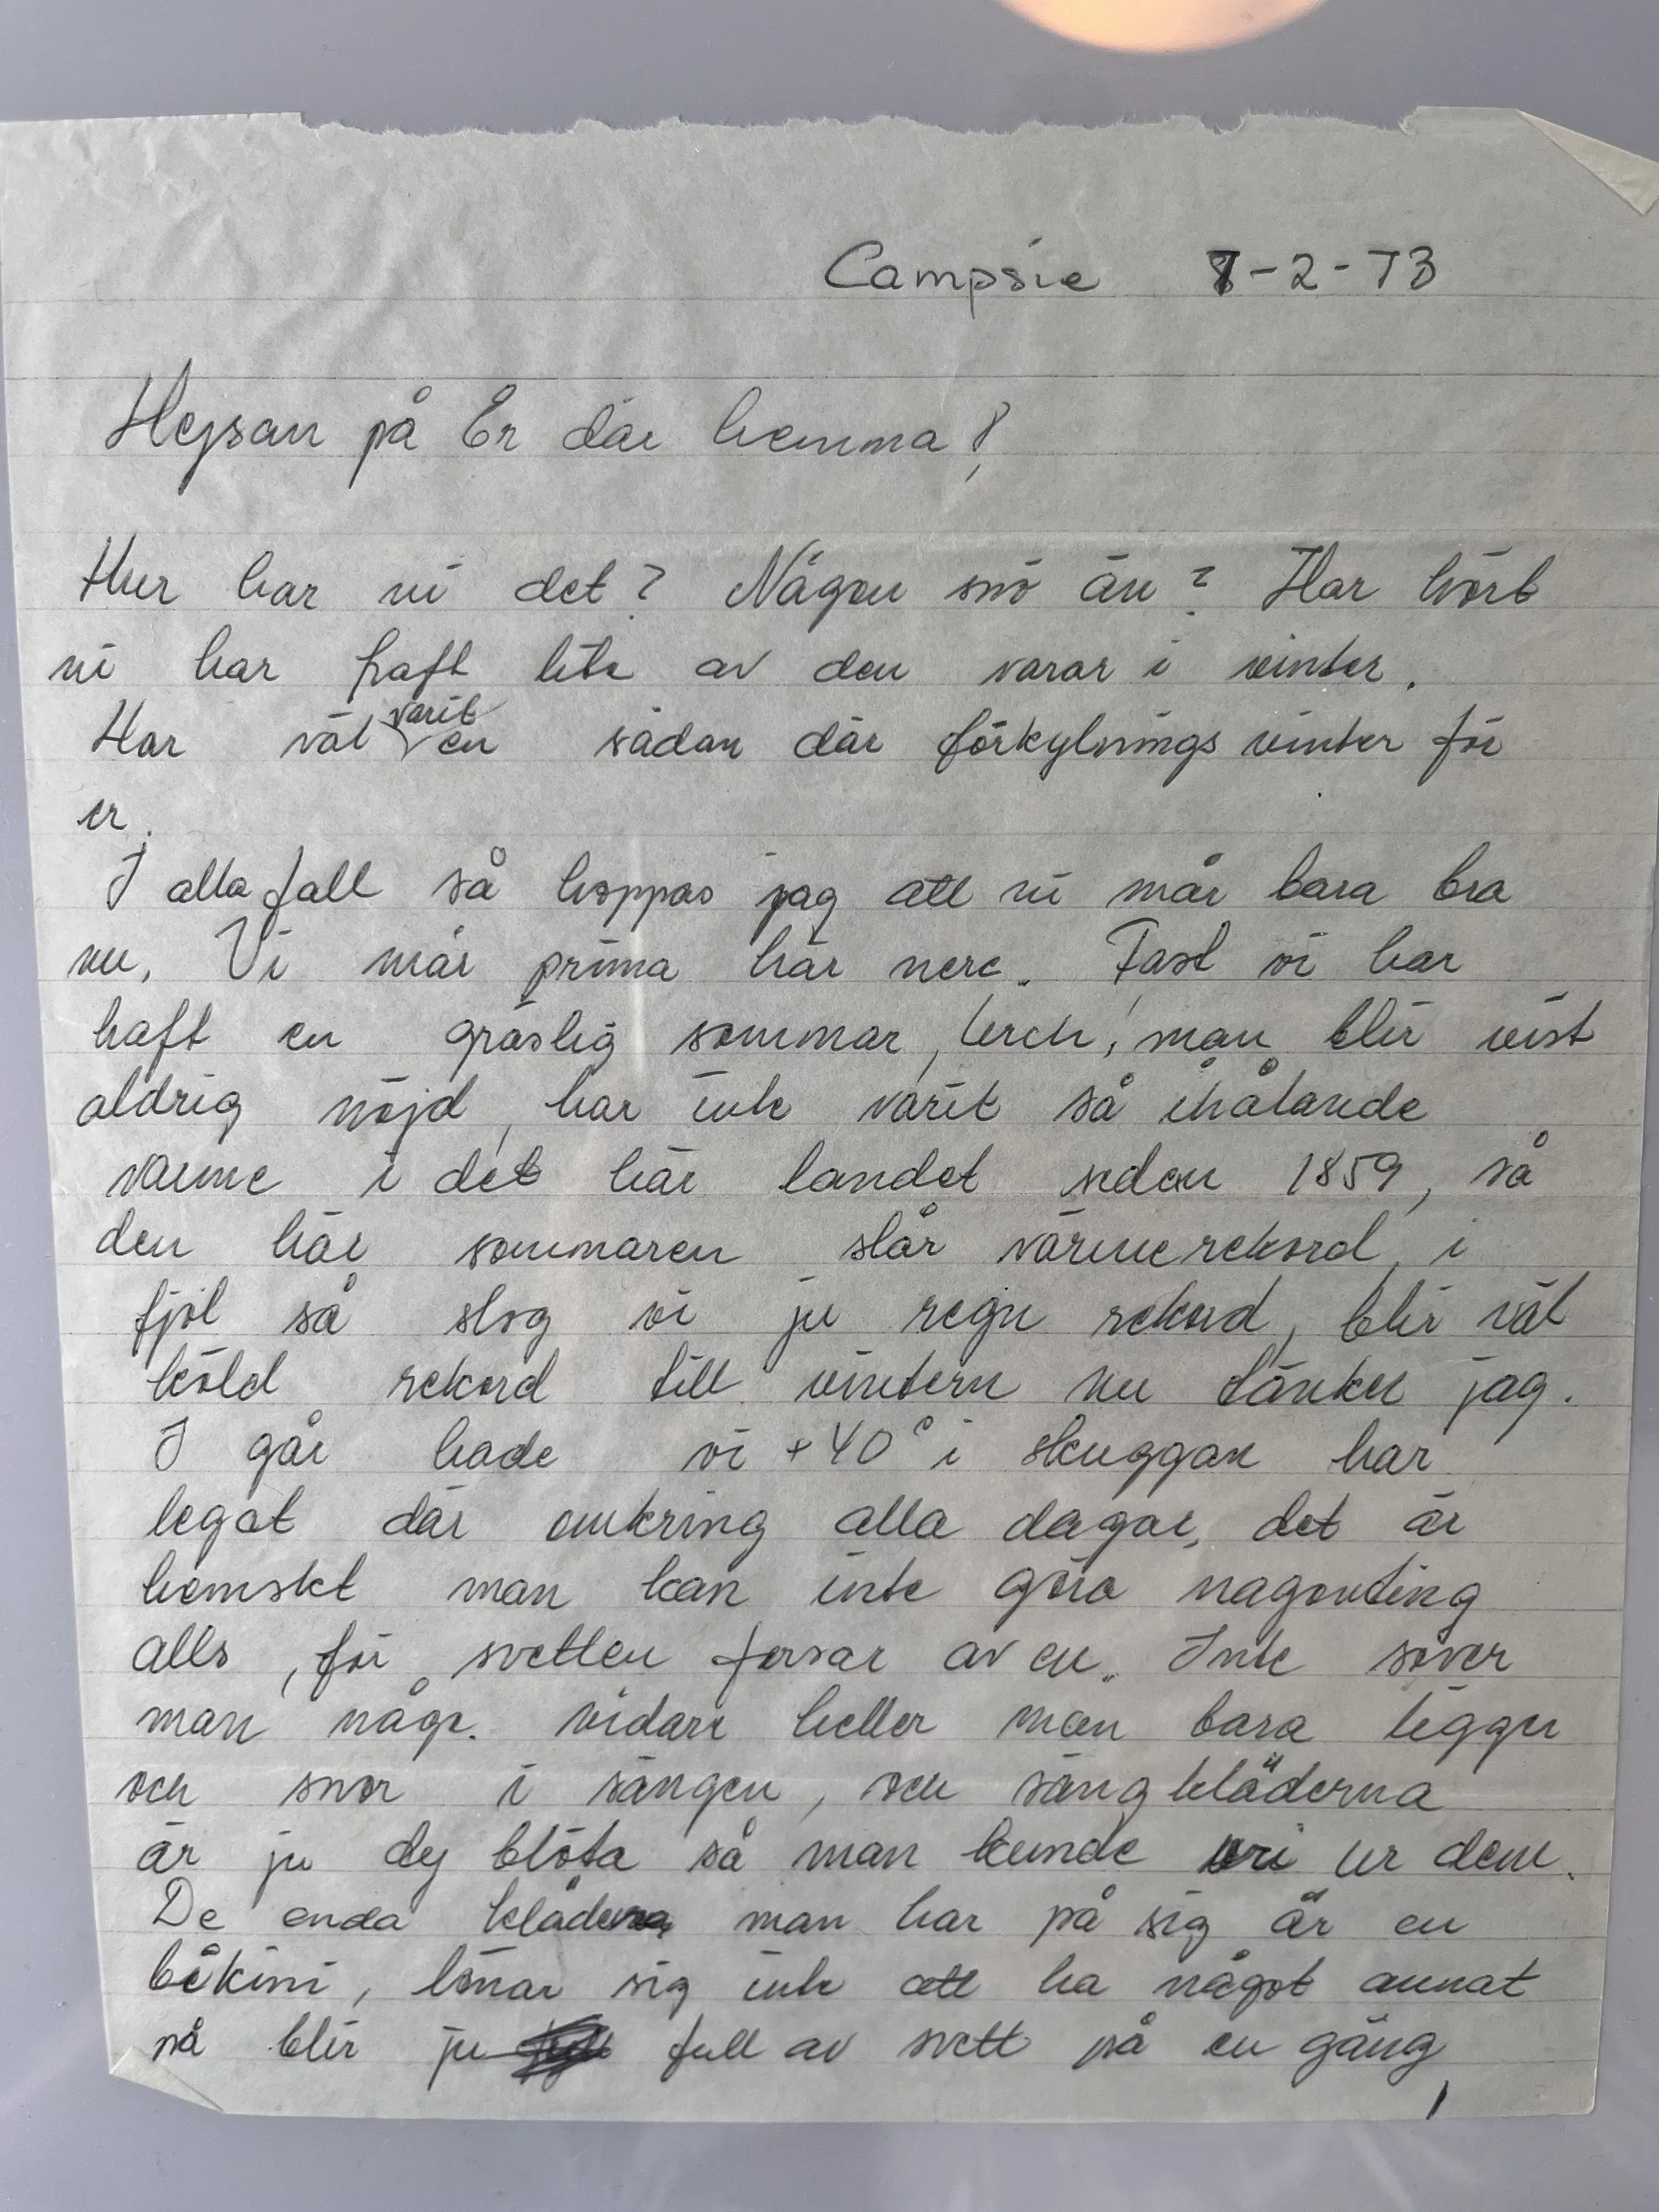 Campsie 8-2-73
Hejsan på Er där hemma!
Hur har ni det? Någon snö än? Har hört
ni har haft lite av den varar i vinter.
Har väl varit en sådan där förkylnings vinter för
er.
I alla fall så hoppas jag att ni mår bara bra
nu. Vi mår prima här nere. Fast vi har
haft en gräslig sommar, usch, man blir vist
aldrig nöjd, har inte varit så ihålande
varme i det här landet sedan 1859, så
den här sommaren slår värmerekord, i
fjol så slog vi ju regn rekord, blir väl
köld rekord till vintern nu tänker jag.
I går hade vi +40° i skuggan har
legat där omkring alla dagar, det är
hemskt man kan inte göra nagonting
alls, för svetten forsar av en. Inte sover
man någr. vidare heller man bara ligger
och snor i sängen, och säng kläderna
är ju dy blöta så man kunde vri ur dem.
De enda kläderna man har på sig är en
bikini, lönar sig inte att ha något annat
så blir ju full av svett på en gång,